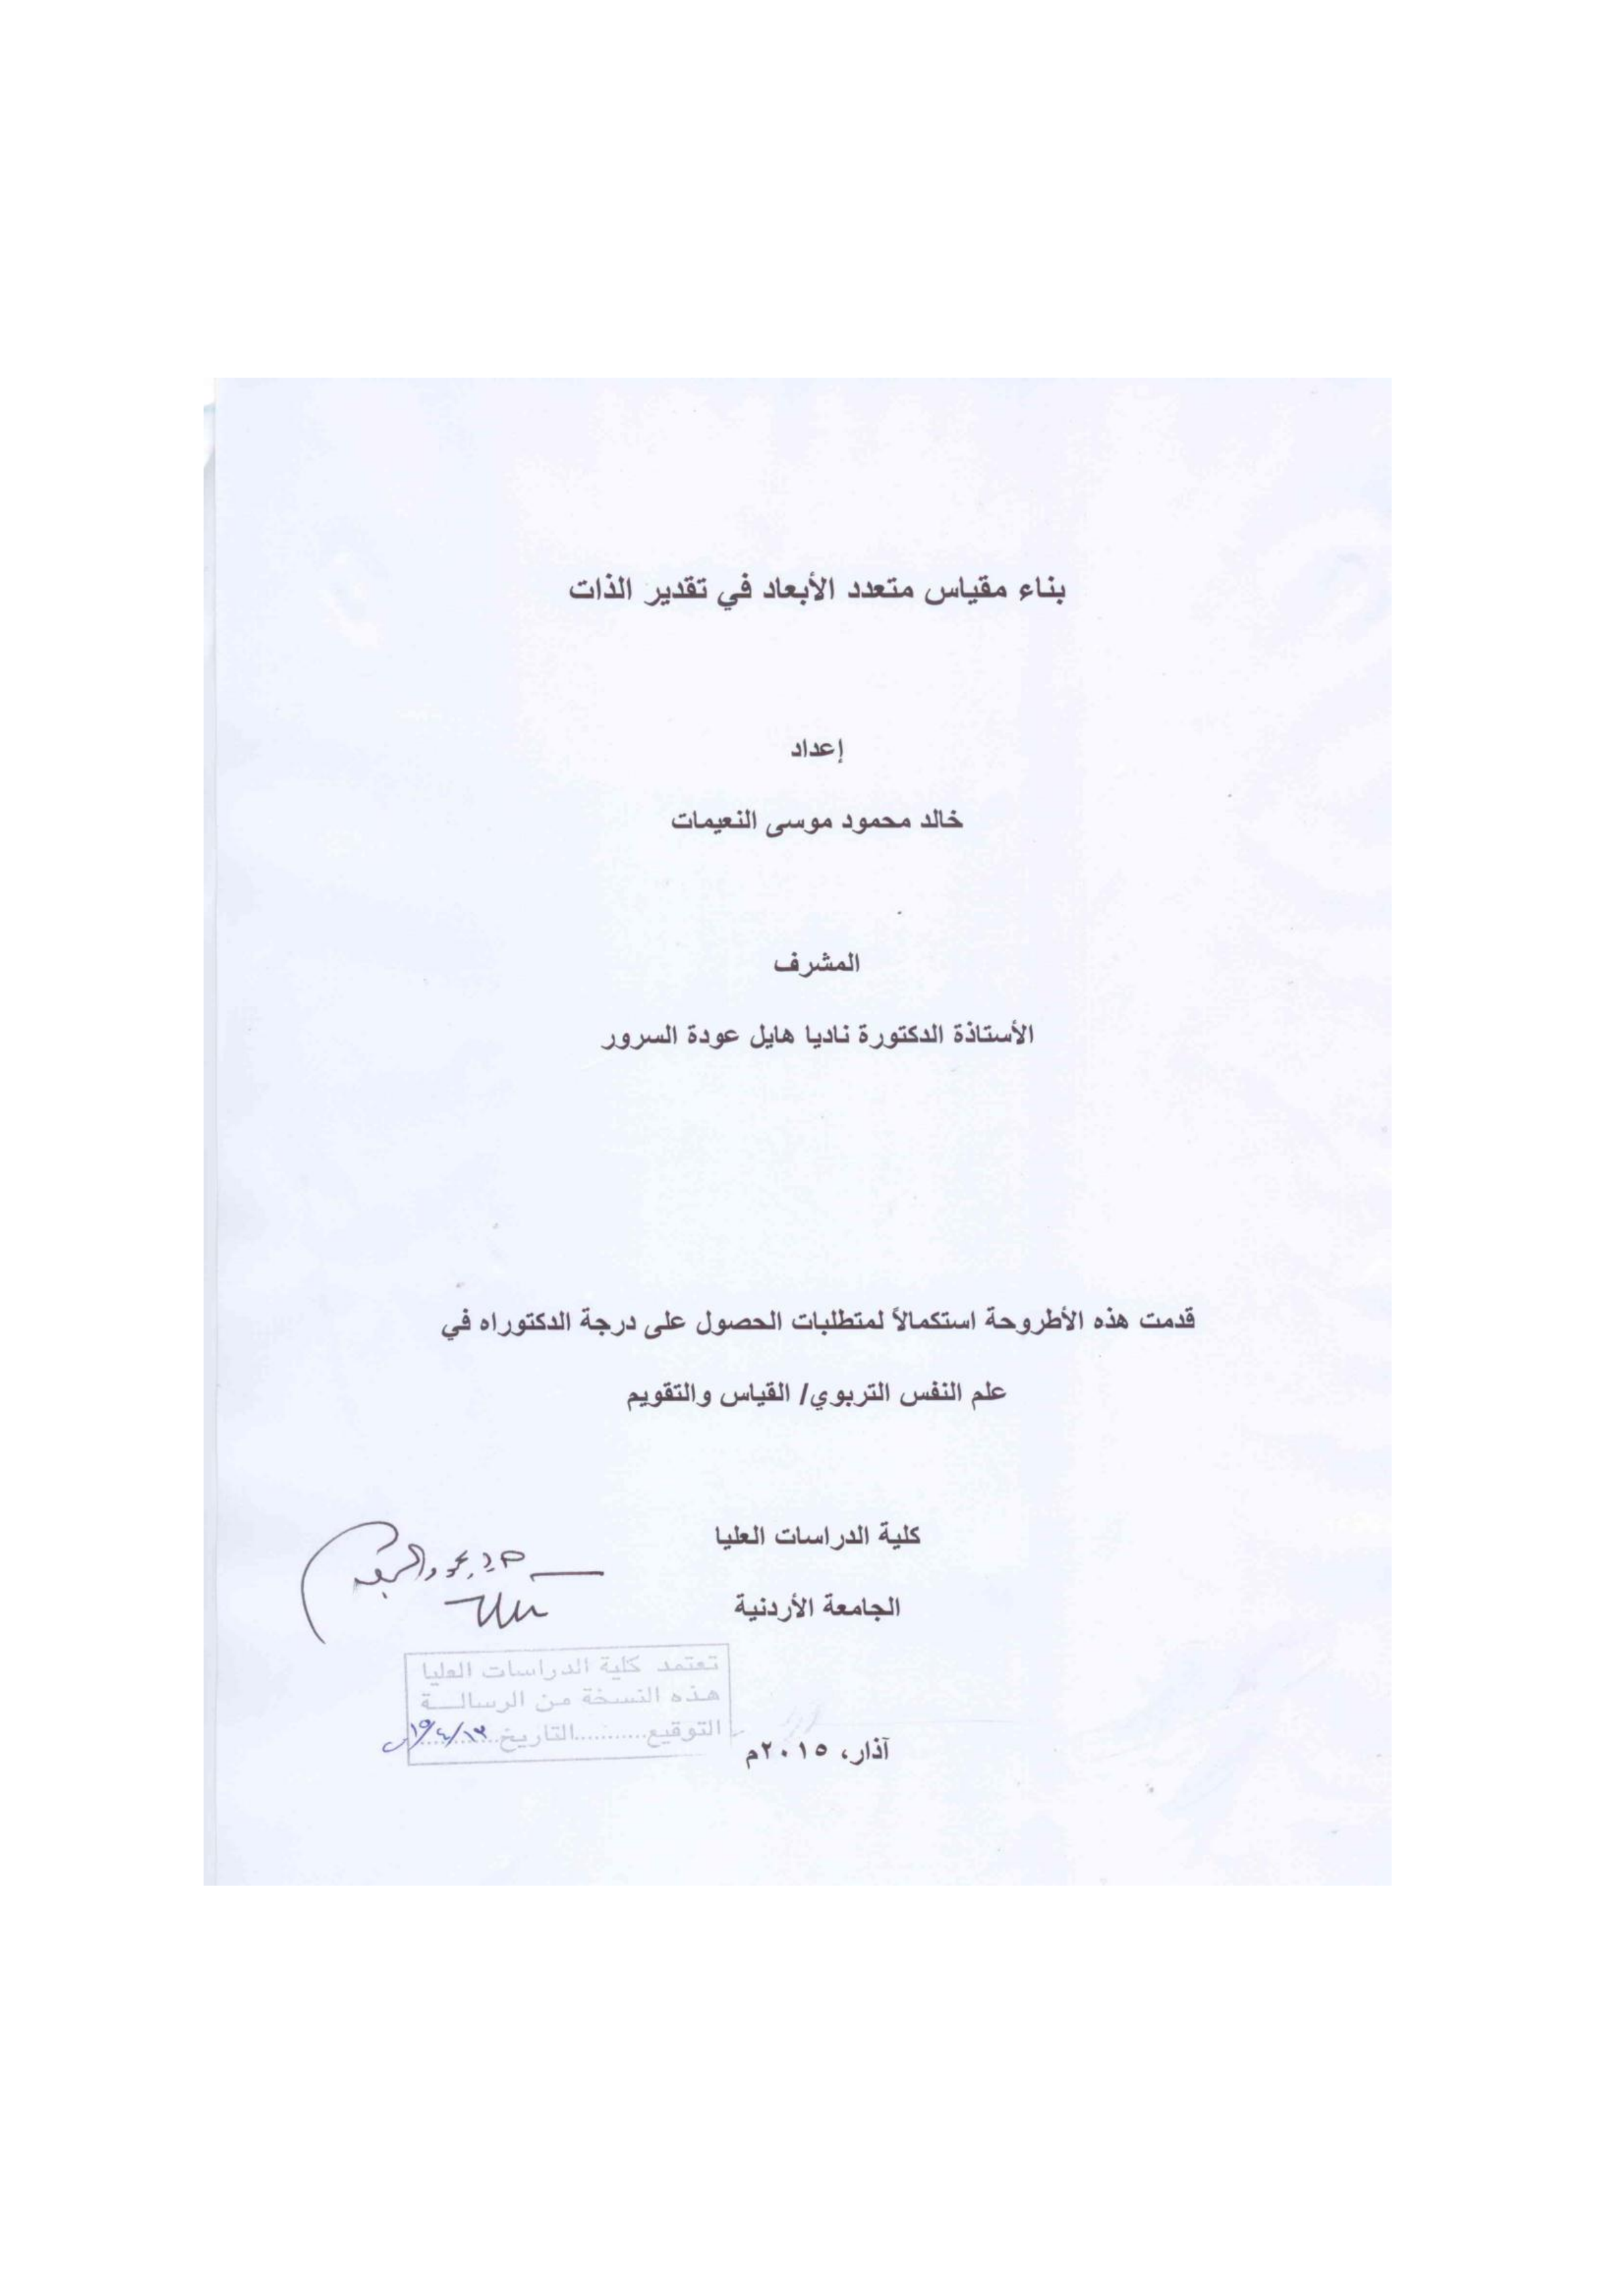 بناء مقياس متعدد الأبعاد في تقدير الذات
إعداد
خالد محمود موسى النعيمات
المشرف
الأستاذة الدكتورة ناديا هايل عودة السرور
قدمت هذه الأطروحة استكمالاً لمتطلبات الحصول على درجة الدكتوراه في
علم النفس التربوي/ القياس والتقويم
كلية الدراسات العليا
الجامعة الأردنية
تعتمد كلية الدراسات العليا
هذه النسخة من الرسالــة
التوقيع...........التاريخ............
آذار، ٢٠١٥م